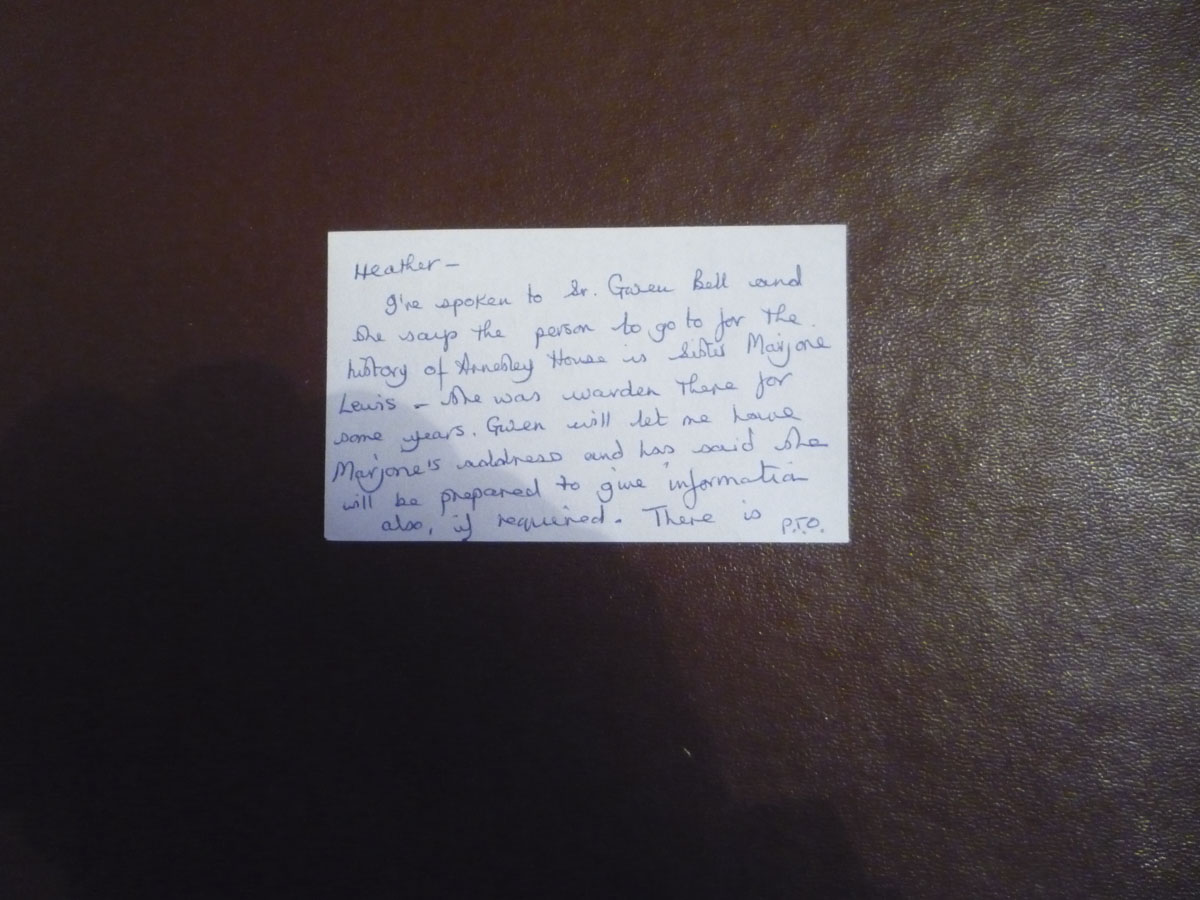 Heather –
I've spoken to Sr. Gwen Bell and
she says the person to go to for the
history of Annesley House is Sister Marjorie
Lewis – she was warden there for
some years. Gwen will let me have
Marjorie's address and has said she
will be prepared to give information
also, if required. There is P.T.O.